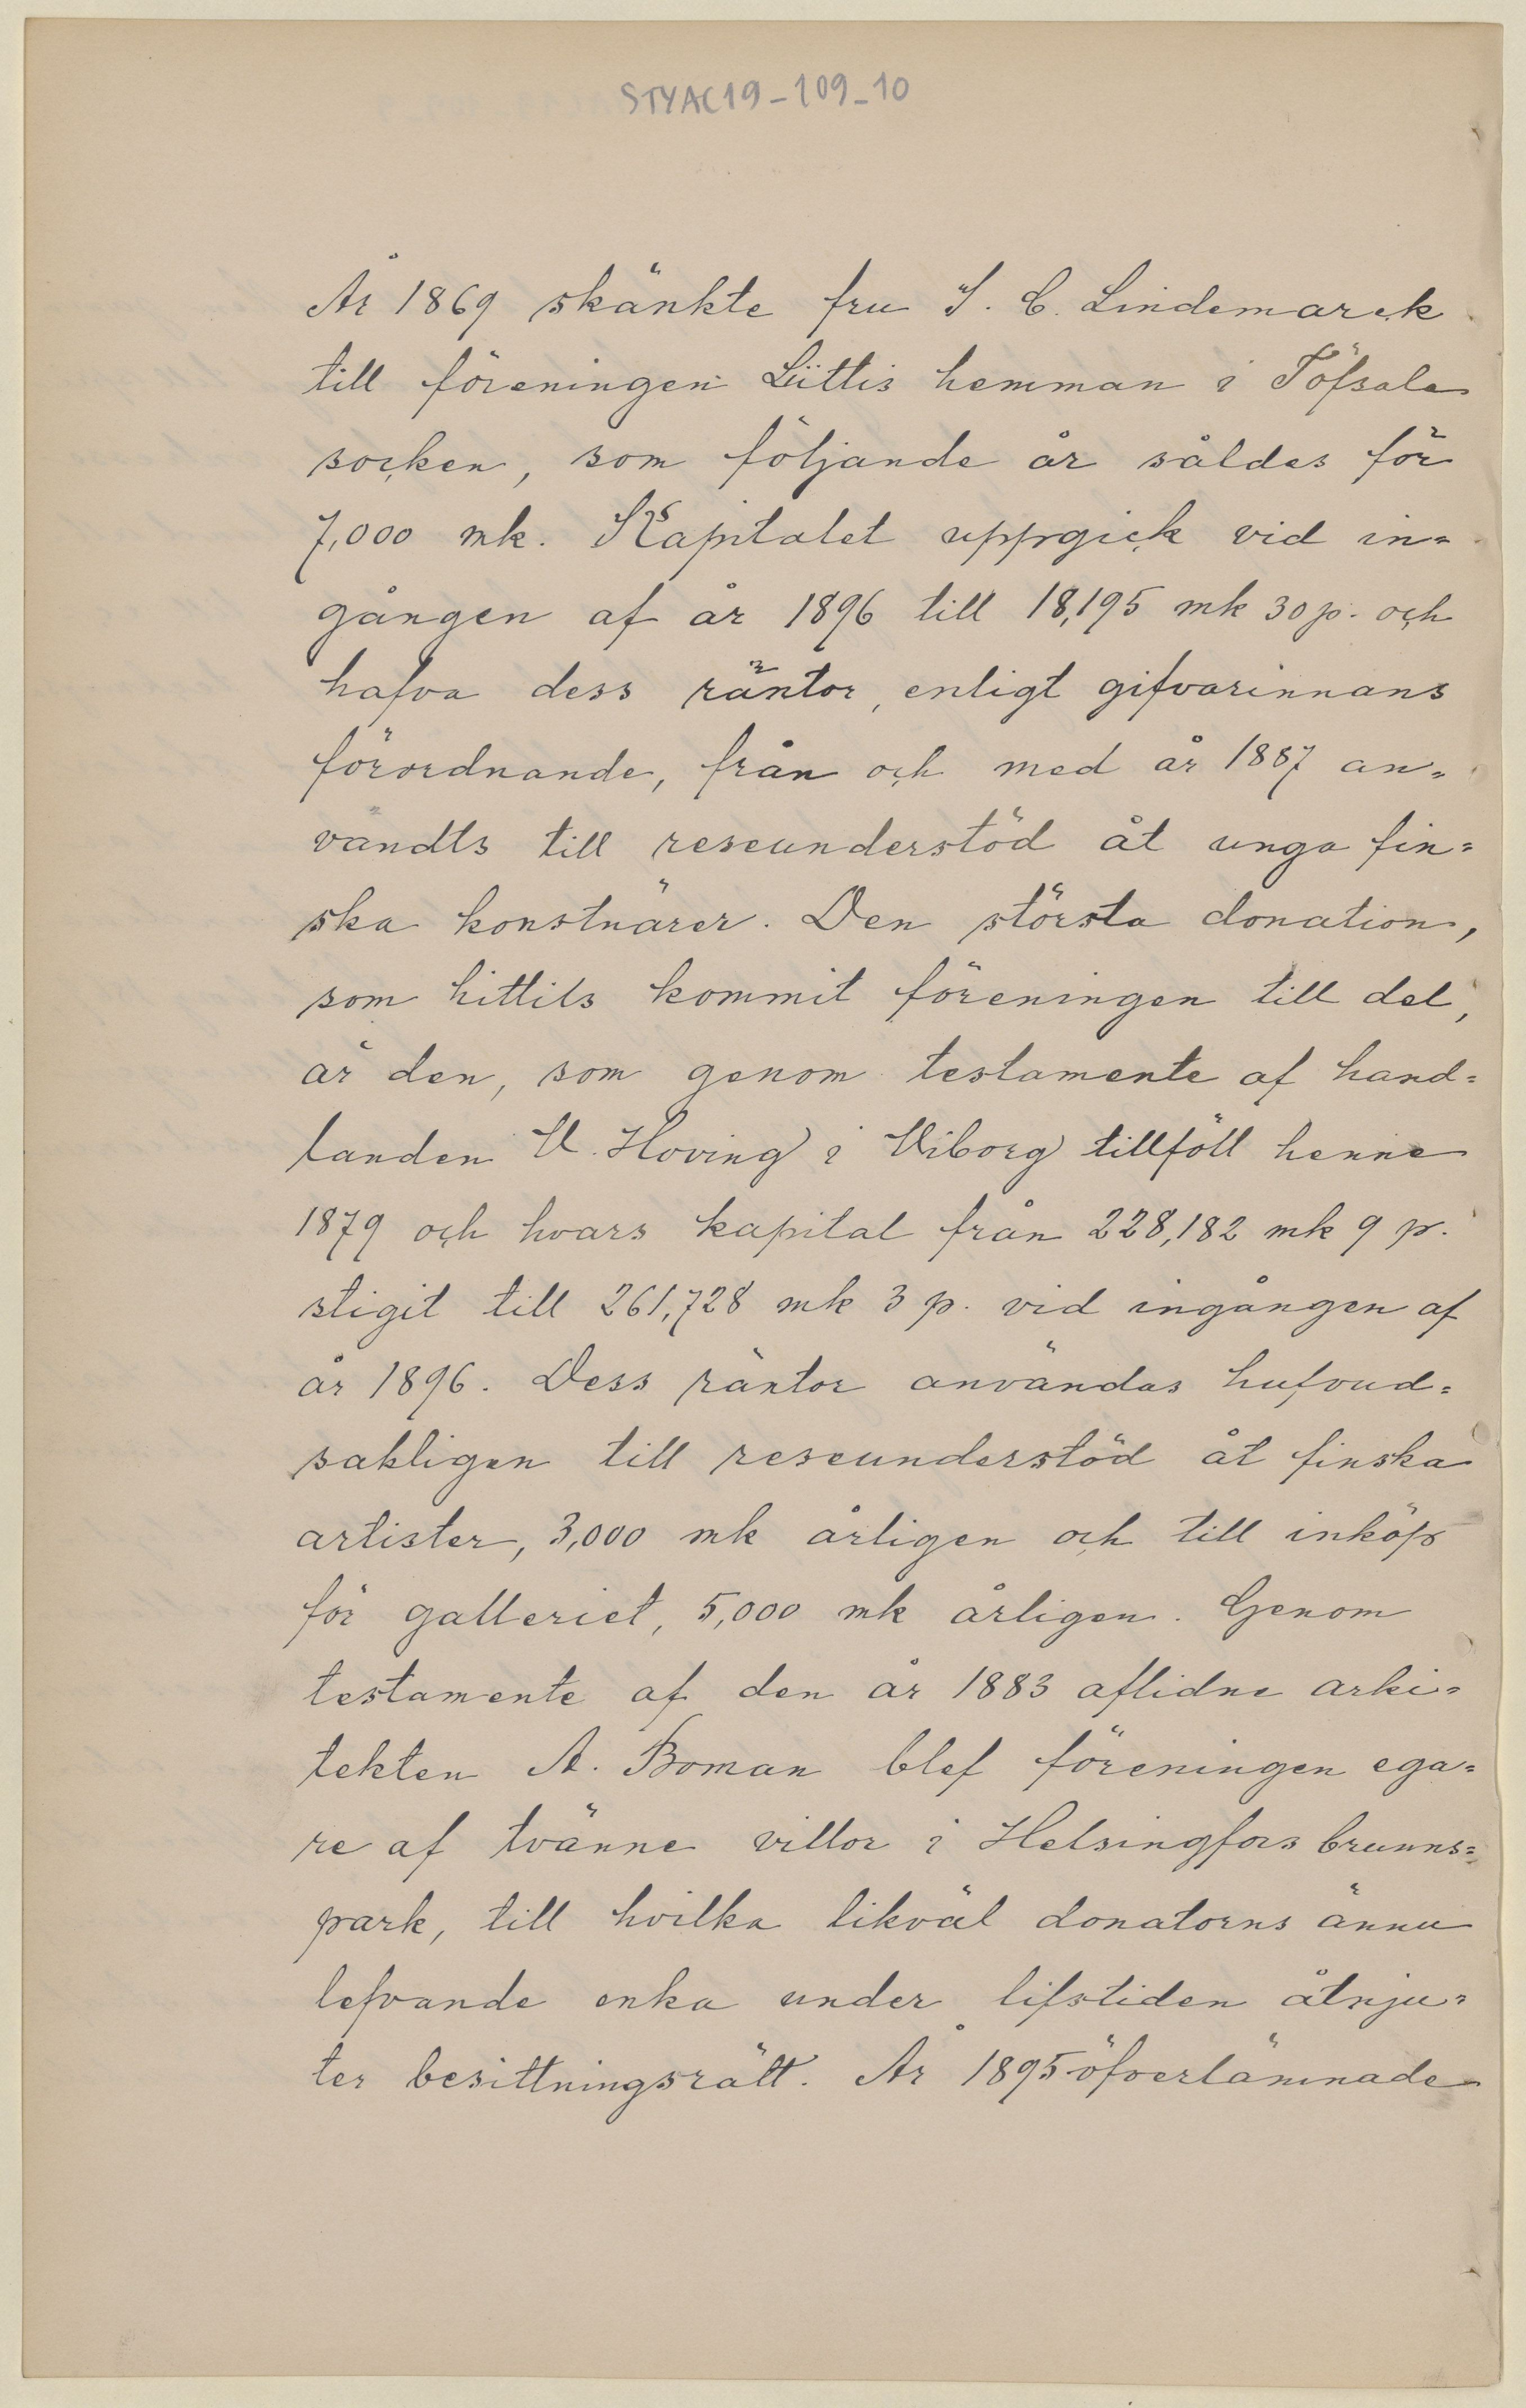 STYAC19-109-10
År 1869 skänkte fru S. C. Lindemarck
till föreningen Liittis hemman i Töfsala
socken, som följande år såldes för
7,000 mk. Kapitalet uppgick vid in=
gången af år 1896 till 18,195 mk 30 p. och
hafva dess räntor, enligt gifvarinnans
förordnande, från och med år 1887 an=
vändts till reseunderstöd åt unga fin=
ska konstnärer. Den största donation,
som hittils kommit föreningen till del,
är den, som genom testamente af hand=
landen V. Hoving i Viborg tillföll henne
1879 och hvars kapital från 228,182 mk 9 p.
stigit till 261,728 mk 3 p. vid ingången af
år 1896. Dess räntor användas hufvud=
sakligen till reseunderstöd åt finska
artister, 3,000 mk årligen och till inköp
för galleriet, 5,000 mk årligen. Genom
testamente af den år 1883 aflidne arki=
tekten A. Boman blef föreningen ega=
re af tvänne villor i Helsingfors brunns=
park, till hvilka likväl donatorns ännu
lefvande enka under lifstiden åtnju=
ter besittningsrätt. År 1895 öfverlämnade